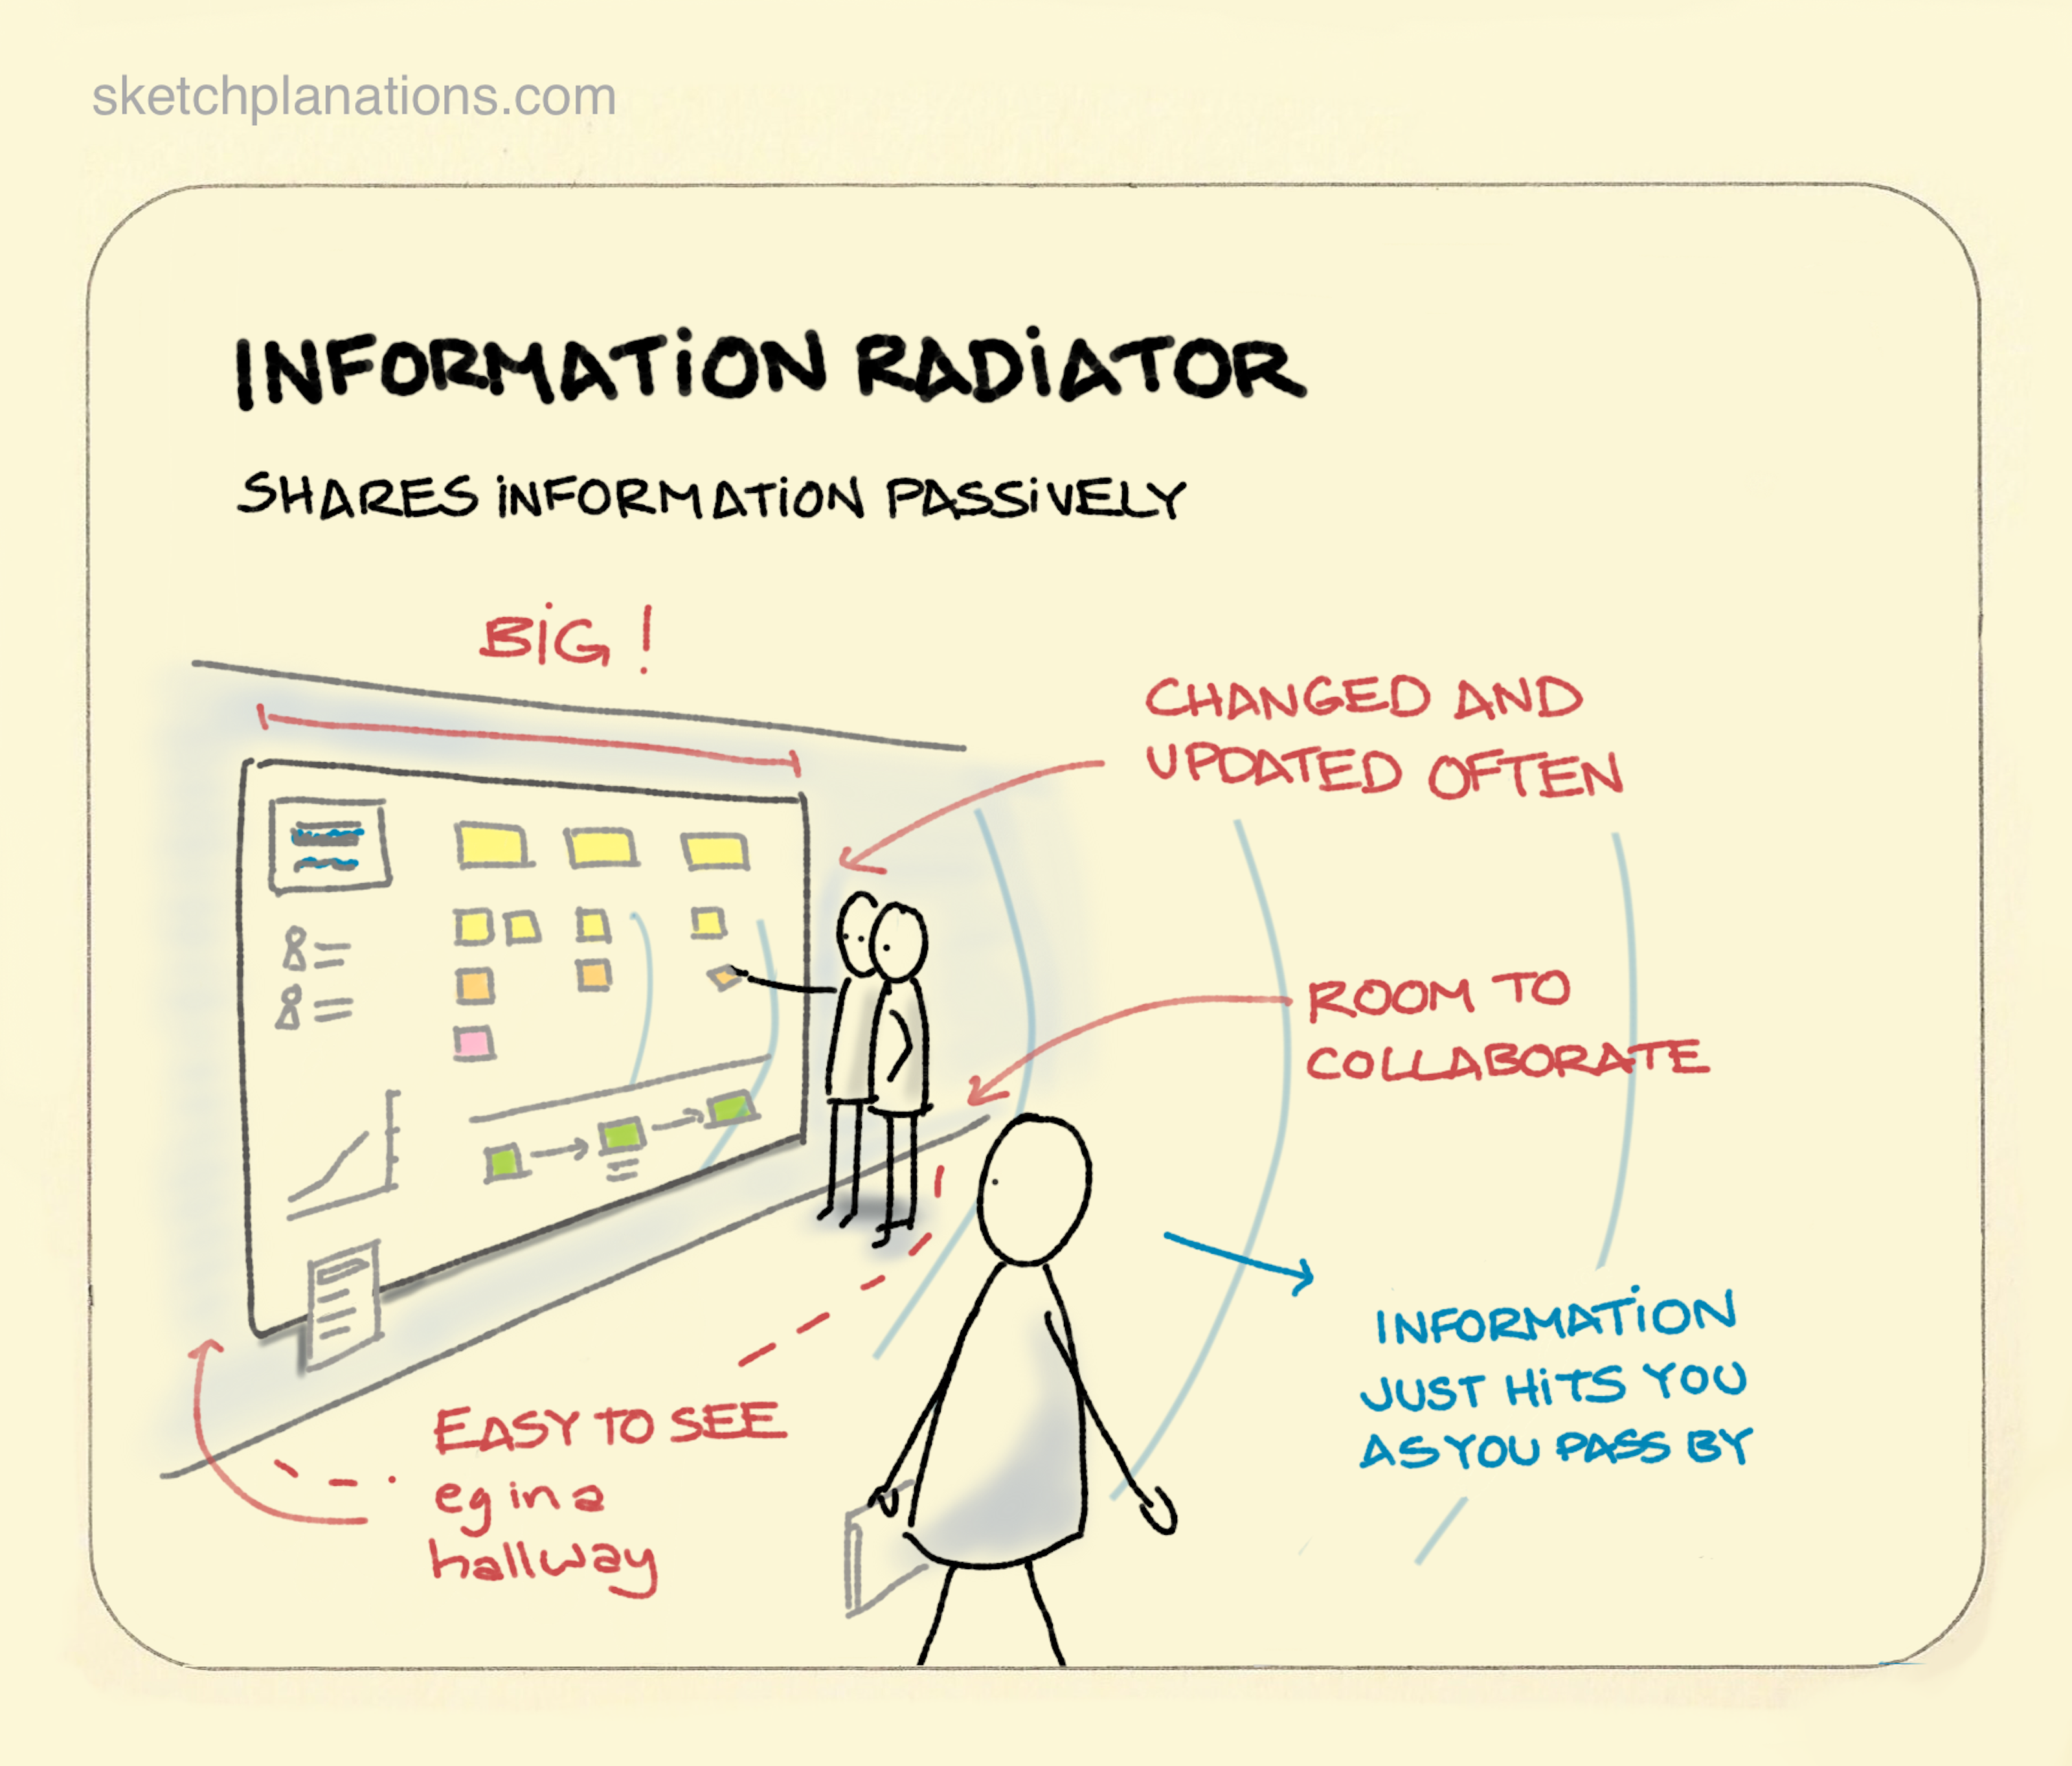 sketchplanations.com
INFORMATION RADIATOR
SHARES INFORMATION PASSIVELY
BIG!
CHANGED AND
UPDATED OFTEN
ROOM TO
COLLABORATE
INFORMATION
JUST HITS YOU
AS YOU PASS BY
EASY TO SEE
eg in a
hallway